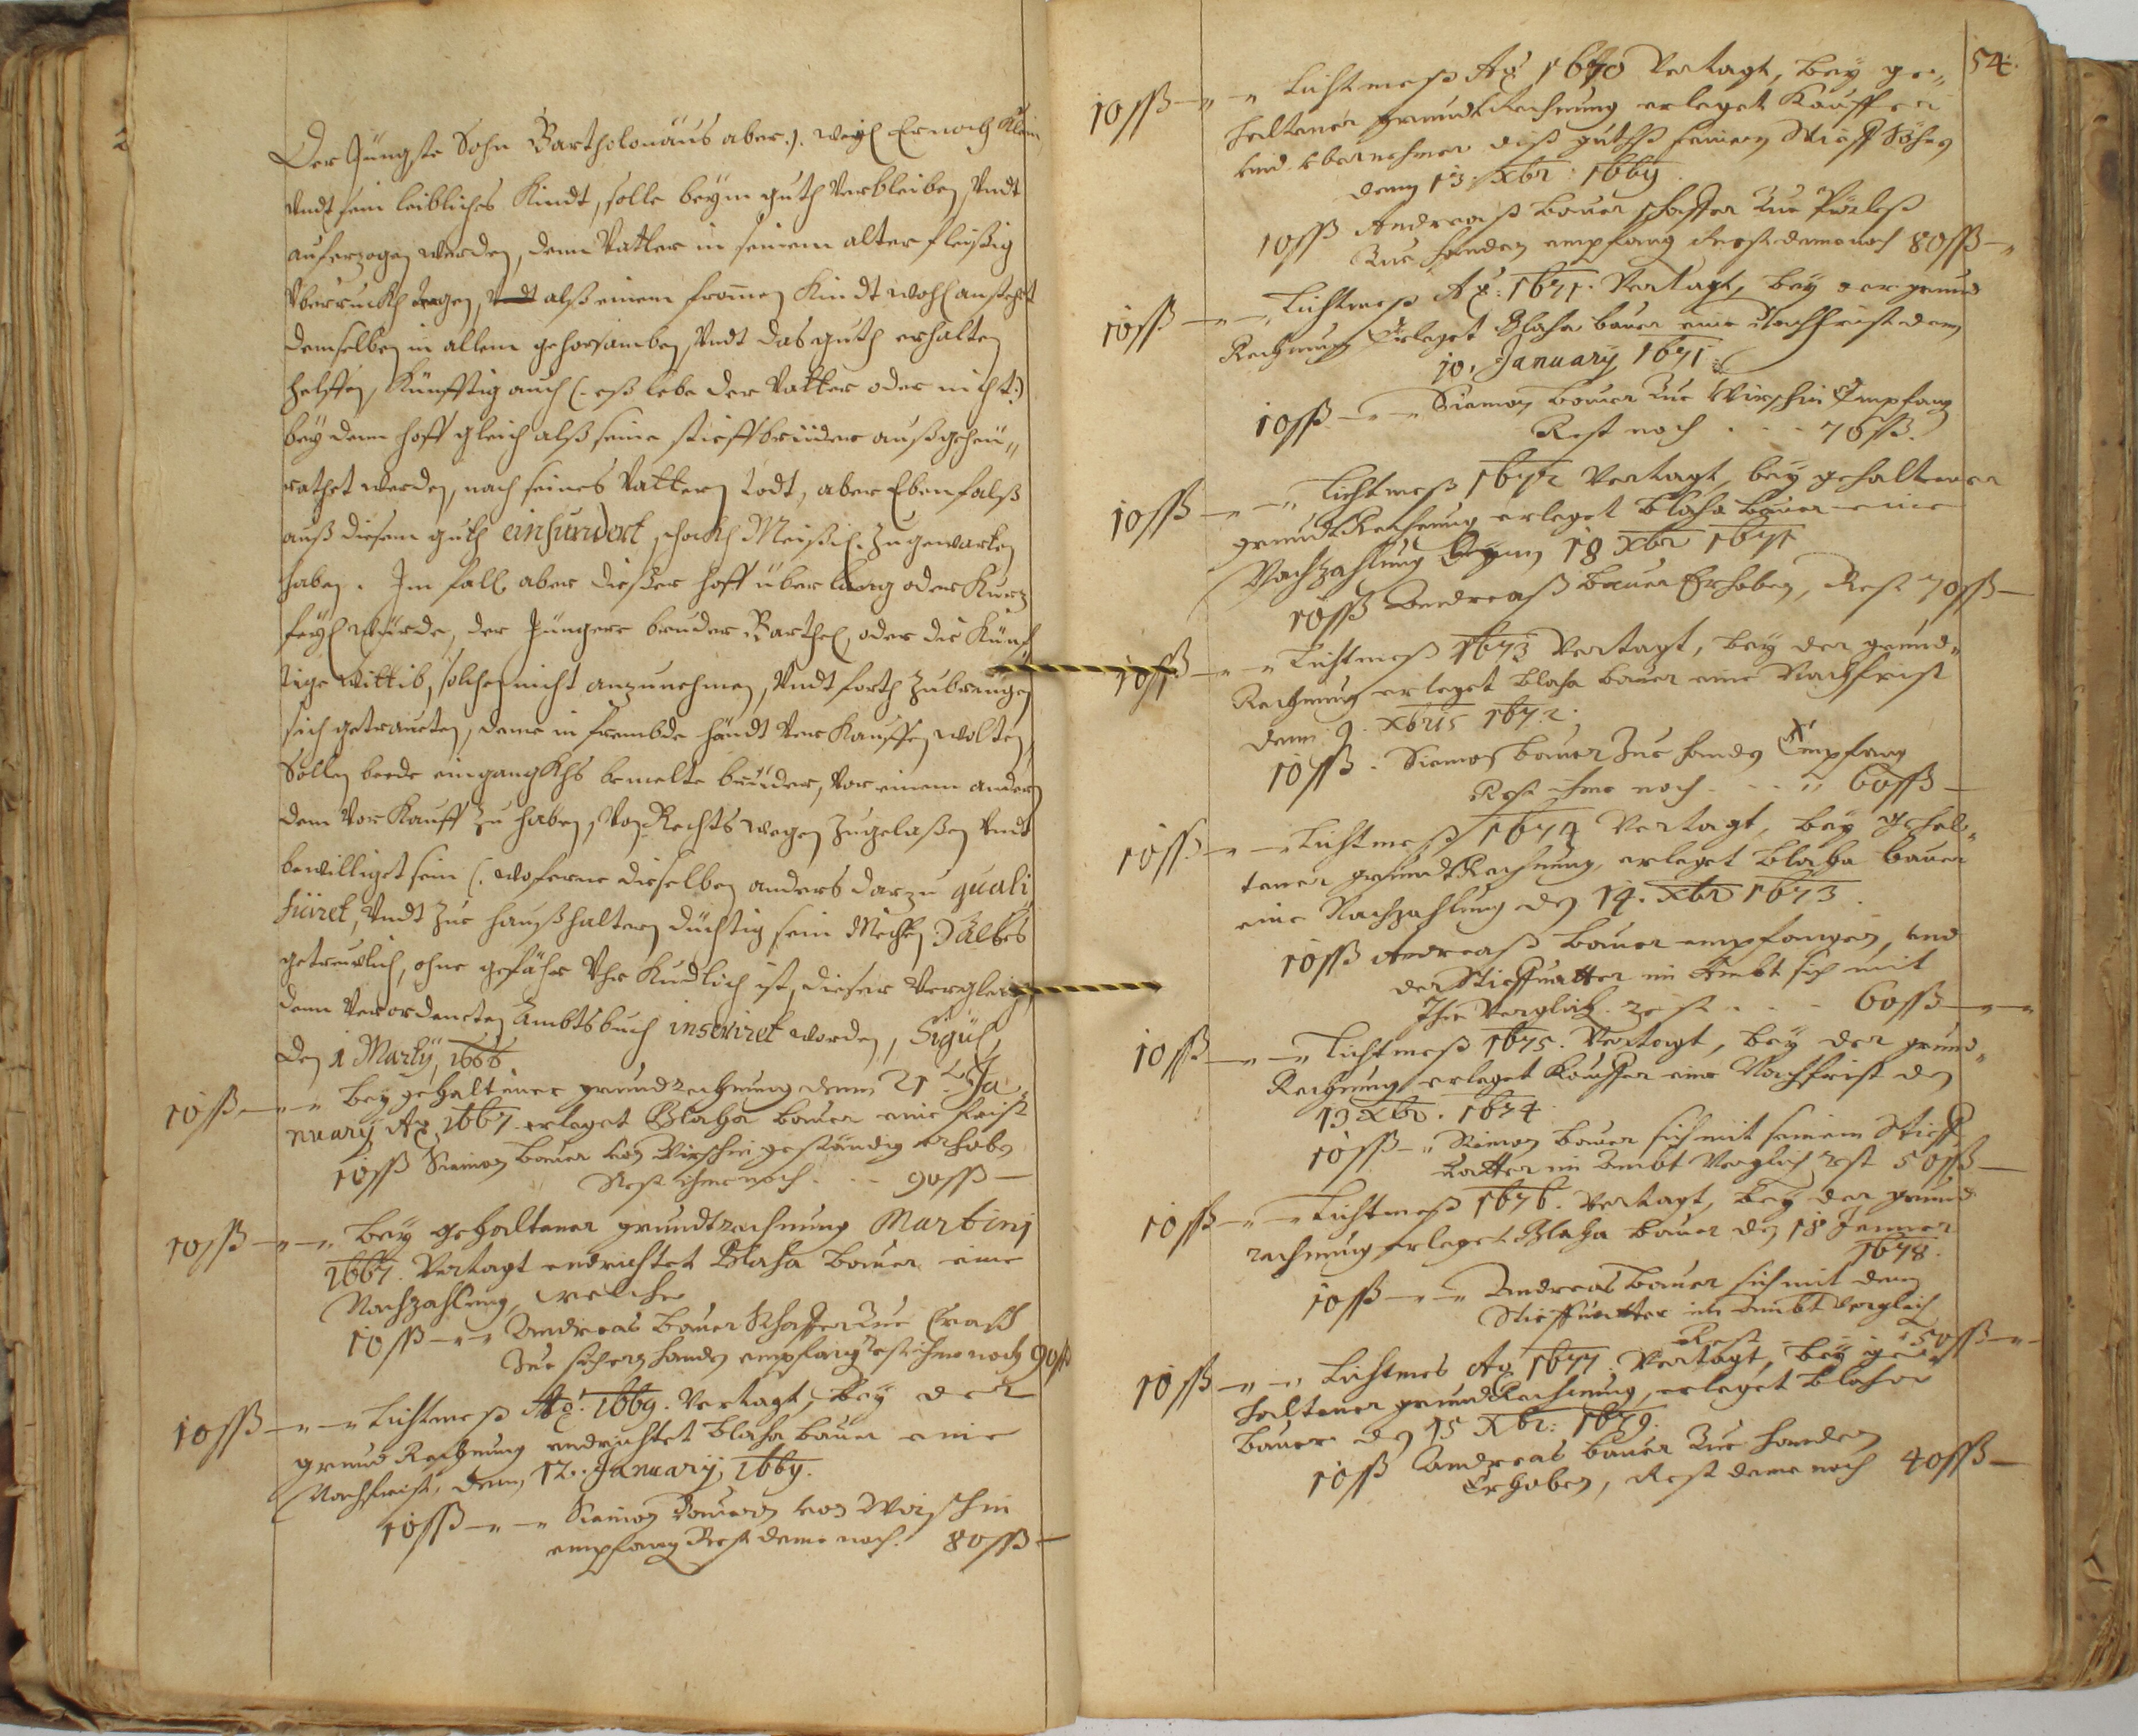 Der Jüngste Sohn Bartholomäus aber .). weyl Er noch Klein
Vndt sein leibliches Kindt, solle beym guth Verbleiben, Vndt
auferzogen werden, dem Vatter in seinem alter fleißig
tragen, Vndt alß einem frommen Kindt wohl anstehet
demselben in allem gehorsamben, Vndt das guth erhalten
helffen, Künfftig auch (: eß lebe der Vatter oder nicht :)
bey dem hoff gleich alß seine stieffbrüder außgeheü„
rathet werden, nach seines Vattern Todt, aber Ebenfalß
auß diesem guth einhundert schockh Meißn. zugewarten
haben. Im fall aber dießer hoff über lang oder Kurz
feyl würde, der Jüngere bruder Barthel, oder die Künf„
tige Wittib, solchen nicht anzunehmen, Vndt forth zubringen
sich getraueten, denne in frembde händt Ver Kauffen wolten,
Sollen beede eingangkhs bemelte brüder, Vor einem andern
dem Vor Kauff zu haben, Von Rechts wegen zugelaßen Vndt
bewilliget sein (: woferne dieselben anders darzu quali
ficiret, Vndt zur haußhalten düchtig sein Möchten :) Alles
getreulich, ohne gefährde Vhr Kundlich ist, dieser Vergleich,
dem Verordneten Ambtsbuch inseriret worden, Sigül,
den 1 Martÿ, 1666
10 ßß — „ — „ Bey gehaltener grundrechnung denn 21 Ja„
nuarÿ Ao 1667 erleget Blaha Bauer eine frist
10 ßß Siemon Bauer von Wirschin geständig erhoben
Rest ihme noch . . . 90 ßß —
10 ßß — „ — „ Bey gehaltener grundtrechnung Martini
1667. Vertagt entrichtet Blaha Bauer eine
Nachzahlung, welche
10 ßß — „ — „ Andreas Bauer Schaffer zue
zue seinen handen empfang Rest ihme noch 90 ßß
10 ßß — „ — „ Lichtmeß Ao: 1669. Vertagt, bey der
grund Rechnung entrichtet Blaha Bauer eine
Nachfrist, denn, 12. Januarÿ, 1669.
10 ßß — „ — „ Siemon Bauer von Wirschin
empfang Rest deme noch. 80 ßß —
54.
10 ßß — „ — „ Lichtmeß Ao 1670 Vertagt, bey ge„
haltener grundt Rechnung erleget Kauffer
vnd vbernehmer diß guthß seinen Stieff Söhnen
denn 13: Xbr: 1669.
10 ßß Andreaß Bauer Schaffer zue
zue handen empfang Rest deme noch 80 ßß — „
10 ßß — „ — „ Lichtmeß Ao: 1671. Vertagt, bey der grund
Rechnung Erleget Blaha bauer eine Nachfrist denn
10. January 1671 :
10 ßß — „ — „ Siemon Bauer zue Wirschin Empfang
Rest noch . . . 70 ßß.
10 ßß — „ — „ Lichtmeß 1672 Vertagt, bey gehaltener
grundt Rechnung erleget Blaha Bauer eine
Nachzahlung denn 18 Xbr 1671
10 ßß Andreaß Bauer Erhoben, Rest 70 ßß —
10 ßß — „ — „ Lichtmeß 1673 Vertagt, bey der grund„
Rechnung erleget Blaha bauer eine Nachfrist
denn 9. Xbris 1672.
10 ßß . Siemon bauer zue handen Empfang
Rest ihme noch . . . „ 60 ßß —
10 ßß — „ — „ Lichtmeß 1674 Vertagt, bey gehal„
tener grundt Rechnung, erleget Blaha bauer
eine Nachzahlung den 14. Xbr 1673.
10 ßß Andreaß Bauer empfangen, vnd
der Stieffvatter im Ambt sich mit
Ihme Verglich. rest . . . 60 ßß — „ —
10 ßß — „ — „ Lichtmeß 1675. Vertagt, bey der grund„
Rechnung erleget Kauffer eine Nachfrist den
13 Xbr. 1674.
10 ßß — „ Siemon Bauer sich mit seinem Stieff
Vatter im Ambt Verglich rest 50 ßß —
10 ßß — „ — „ Lichtmeß 1676. Vertagt, bey der grund
rechnung erleget Blaha Bauer den 18 Jenner
1678.
10 ßß — „ — „ Andreas Bauer sich mit dem
Stieffvatter im Ambt verglich
Rest 50 ßß — „ —
10 ßß — „ — „ Lichtmes Ao 1677. Vertagt, bey ge„
haltener grundt Rechnung, erleget Blaha
Bauer den 15 Xbr: 1679.
10 ßß Andreas Bauer zue handen
Erhoben, Rest deme noch 40 ßß —